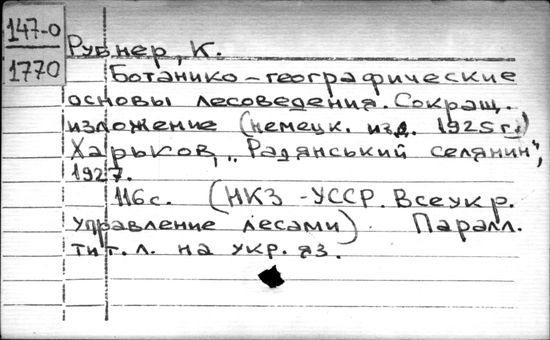 147-0
1770
Рубнер, К.
Ботанико-географические
основы лесоведения. Сокращ.
изложение (немецк. изд. 1925г.)
Харьков, „Радянський селянин",
1927.
116с. (НКЗ - УССР. Всеукр.
управление лесами) Паралл.
тит. л. на укр. яз.